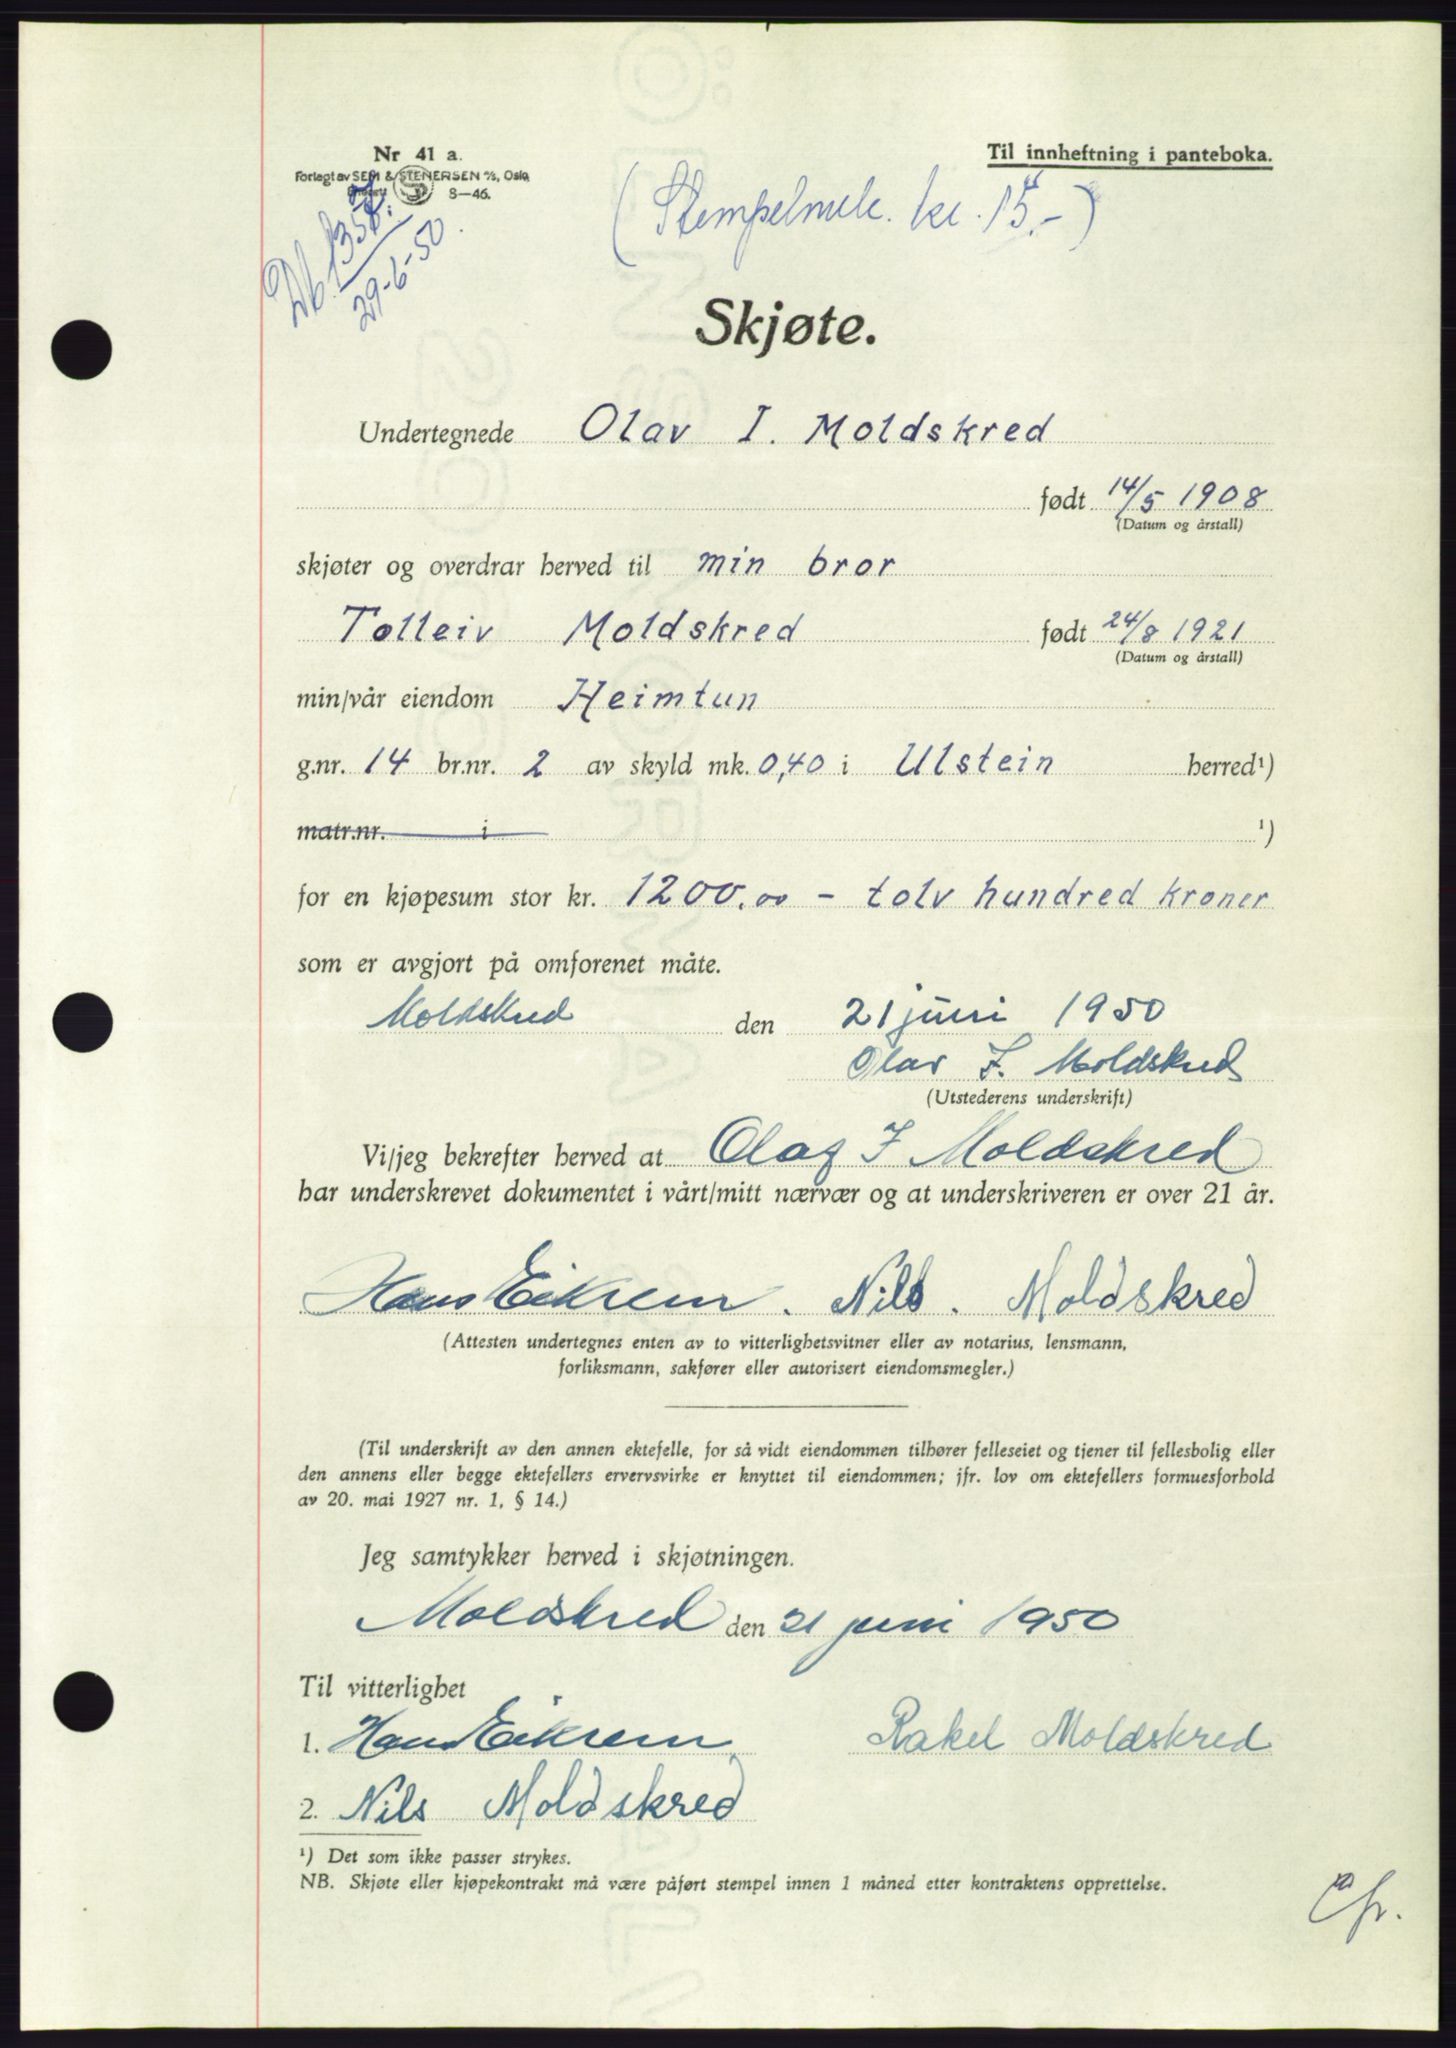 Nr 41 a.
Forlagt av SEM & STENERSEN A/S, Oslo
8—46.
Til innheftning i panteboka.
Db. 1357.
29-6-50.
(Stempelmerke. kr. 15.-)
Skjøte.
Undertegnede Olav I. Moldskred
født 14/5 1908
(Datum og årstall)
skjøter og overdrar herved til min bror
Tolleiv Moldskred født 24/8 1921
(Datum og årstall)
min/vår eiendom Heimtun
g.nr. 14 br.nr. 2 av skyld mk. 0,40 i Ulstein herred¹)
matr.nr. i ¹)
for en kjøpesum stor kr. 1200,00 - tolv hundred kroner
som er avgjort på omforenet måte.
Moldskred den 21 juni 1950
Olav I. Moldskred
(Utstederens underskrift)
Vi/jeg bekrefter herved at Olag I Moldskred
har underskrevet dokumentet i vårt/mitt nærvær og at underskriveren er over 21 år.
Hans Eikrem. Nils. Moldskred
(Attesten undertegnes enten av to vitterlighetsvitner eller av notarius, lensmann,
forliksmann, sakfører eller autorisert eiendomsmegler.)
(Til underskrift av den annen ektefelle, for så vidt eiendommen tilhører felleseiet og tjener til fellesbolig eller
den annens eller begge ektefellers ervervsvirke er knyttet til eiendommen; jfr. lov om ektefellers formuesforhold
av 20. mai 1927 nr. 1, § 14.)
Jeg samtykker herved i skjøtningen.
Moldskred den 21 juni 1950
Til vitterlighet
1. Hans Eikrem Rakel Moldskred
2. Nils Moldskred
¹) Det som ikke passer strykes.
NB. Skjøte eller kjøpekontrakt må være påført stempel innen 1 måned etter kontraktens opprettelse.